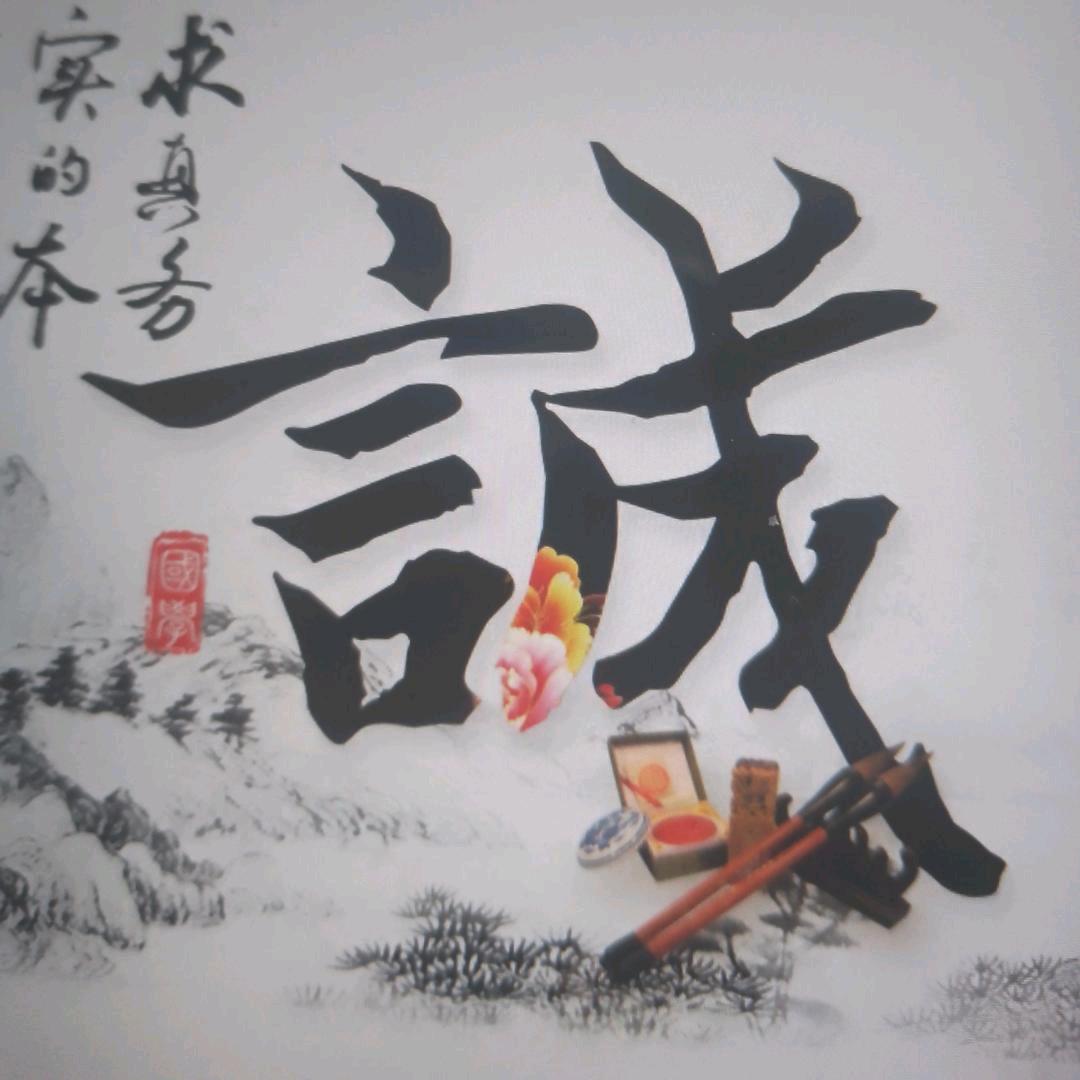 求真务
实的本
誠
國學